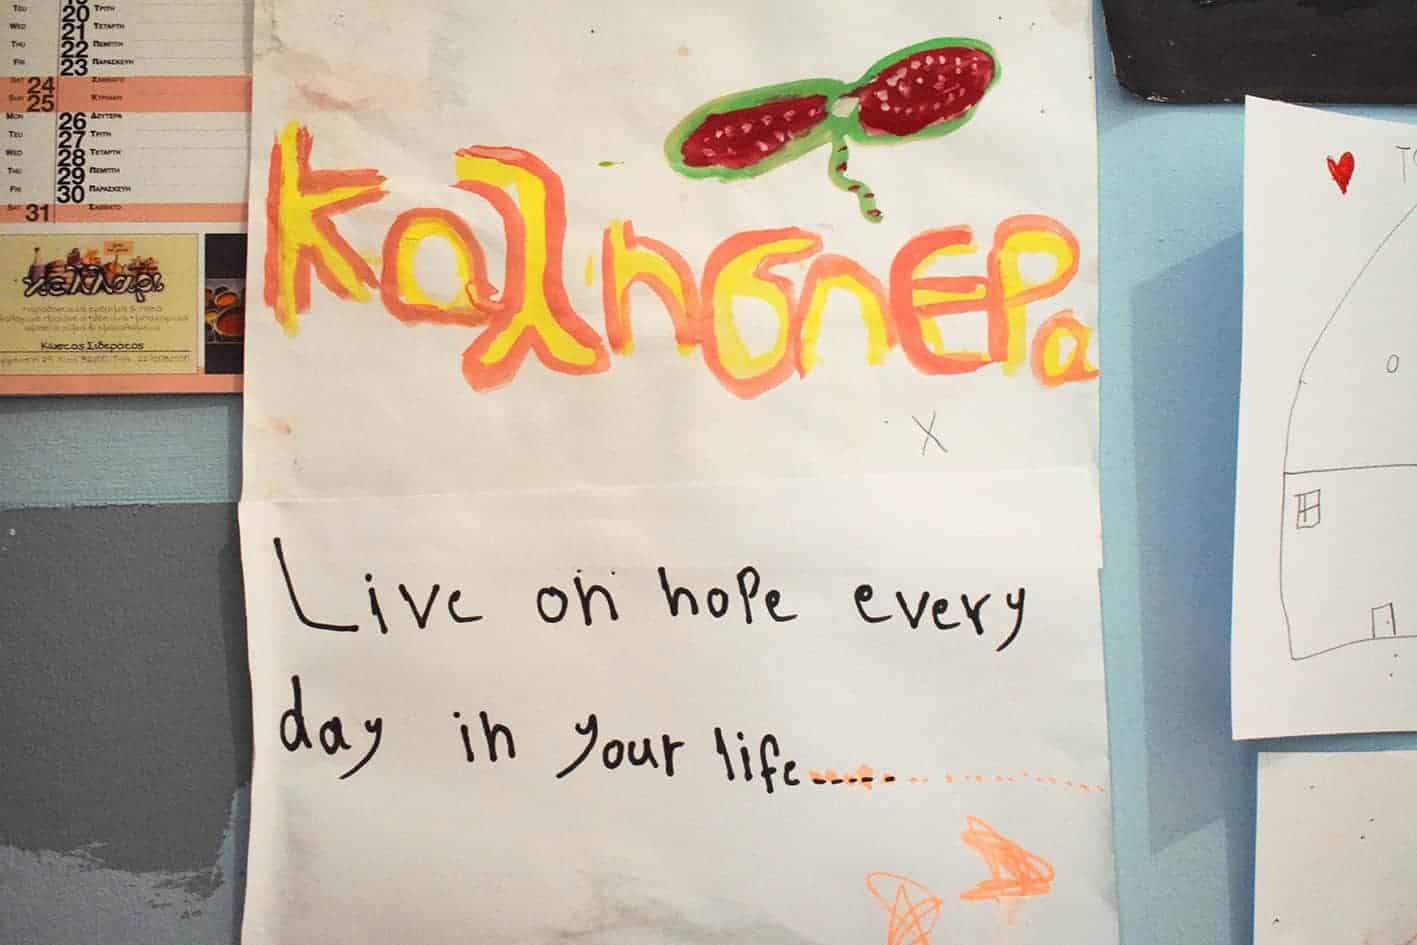 TEU 20 ΤΡΙΤΗ
WED 21 ΤΕΤΑΡΤΗ
THU 22 ΠΕΜΠΤΗ
FRI 23 ΠΑΡΑΣΚΕΥΗ
SAT 24 ΣΑΒΒΑΤΟ
SUN 25 ΚΥΡΙΑΚΗ
MON 26 ΔΕΥΤΕΡΑ
TEU 27 ΤΡΙΤΗ
WED 28 ΤΕΤΑΡΤΗ
THU 29 ΠΕΜΠΤΗ
FRI 30 ΠΑΡΑΣΚΕΥΗ
SAT 31 ΣΑΒΒΑΤΟ
κελλάρι
Κώστας Σιδεράτος
καλησπΕΡα
X
Live on hope every
day in your life.....